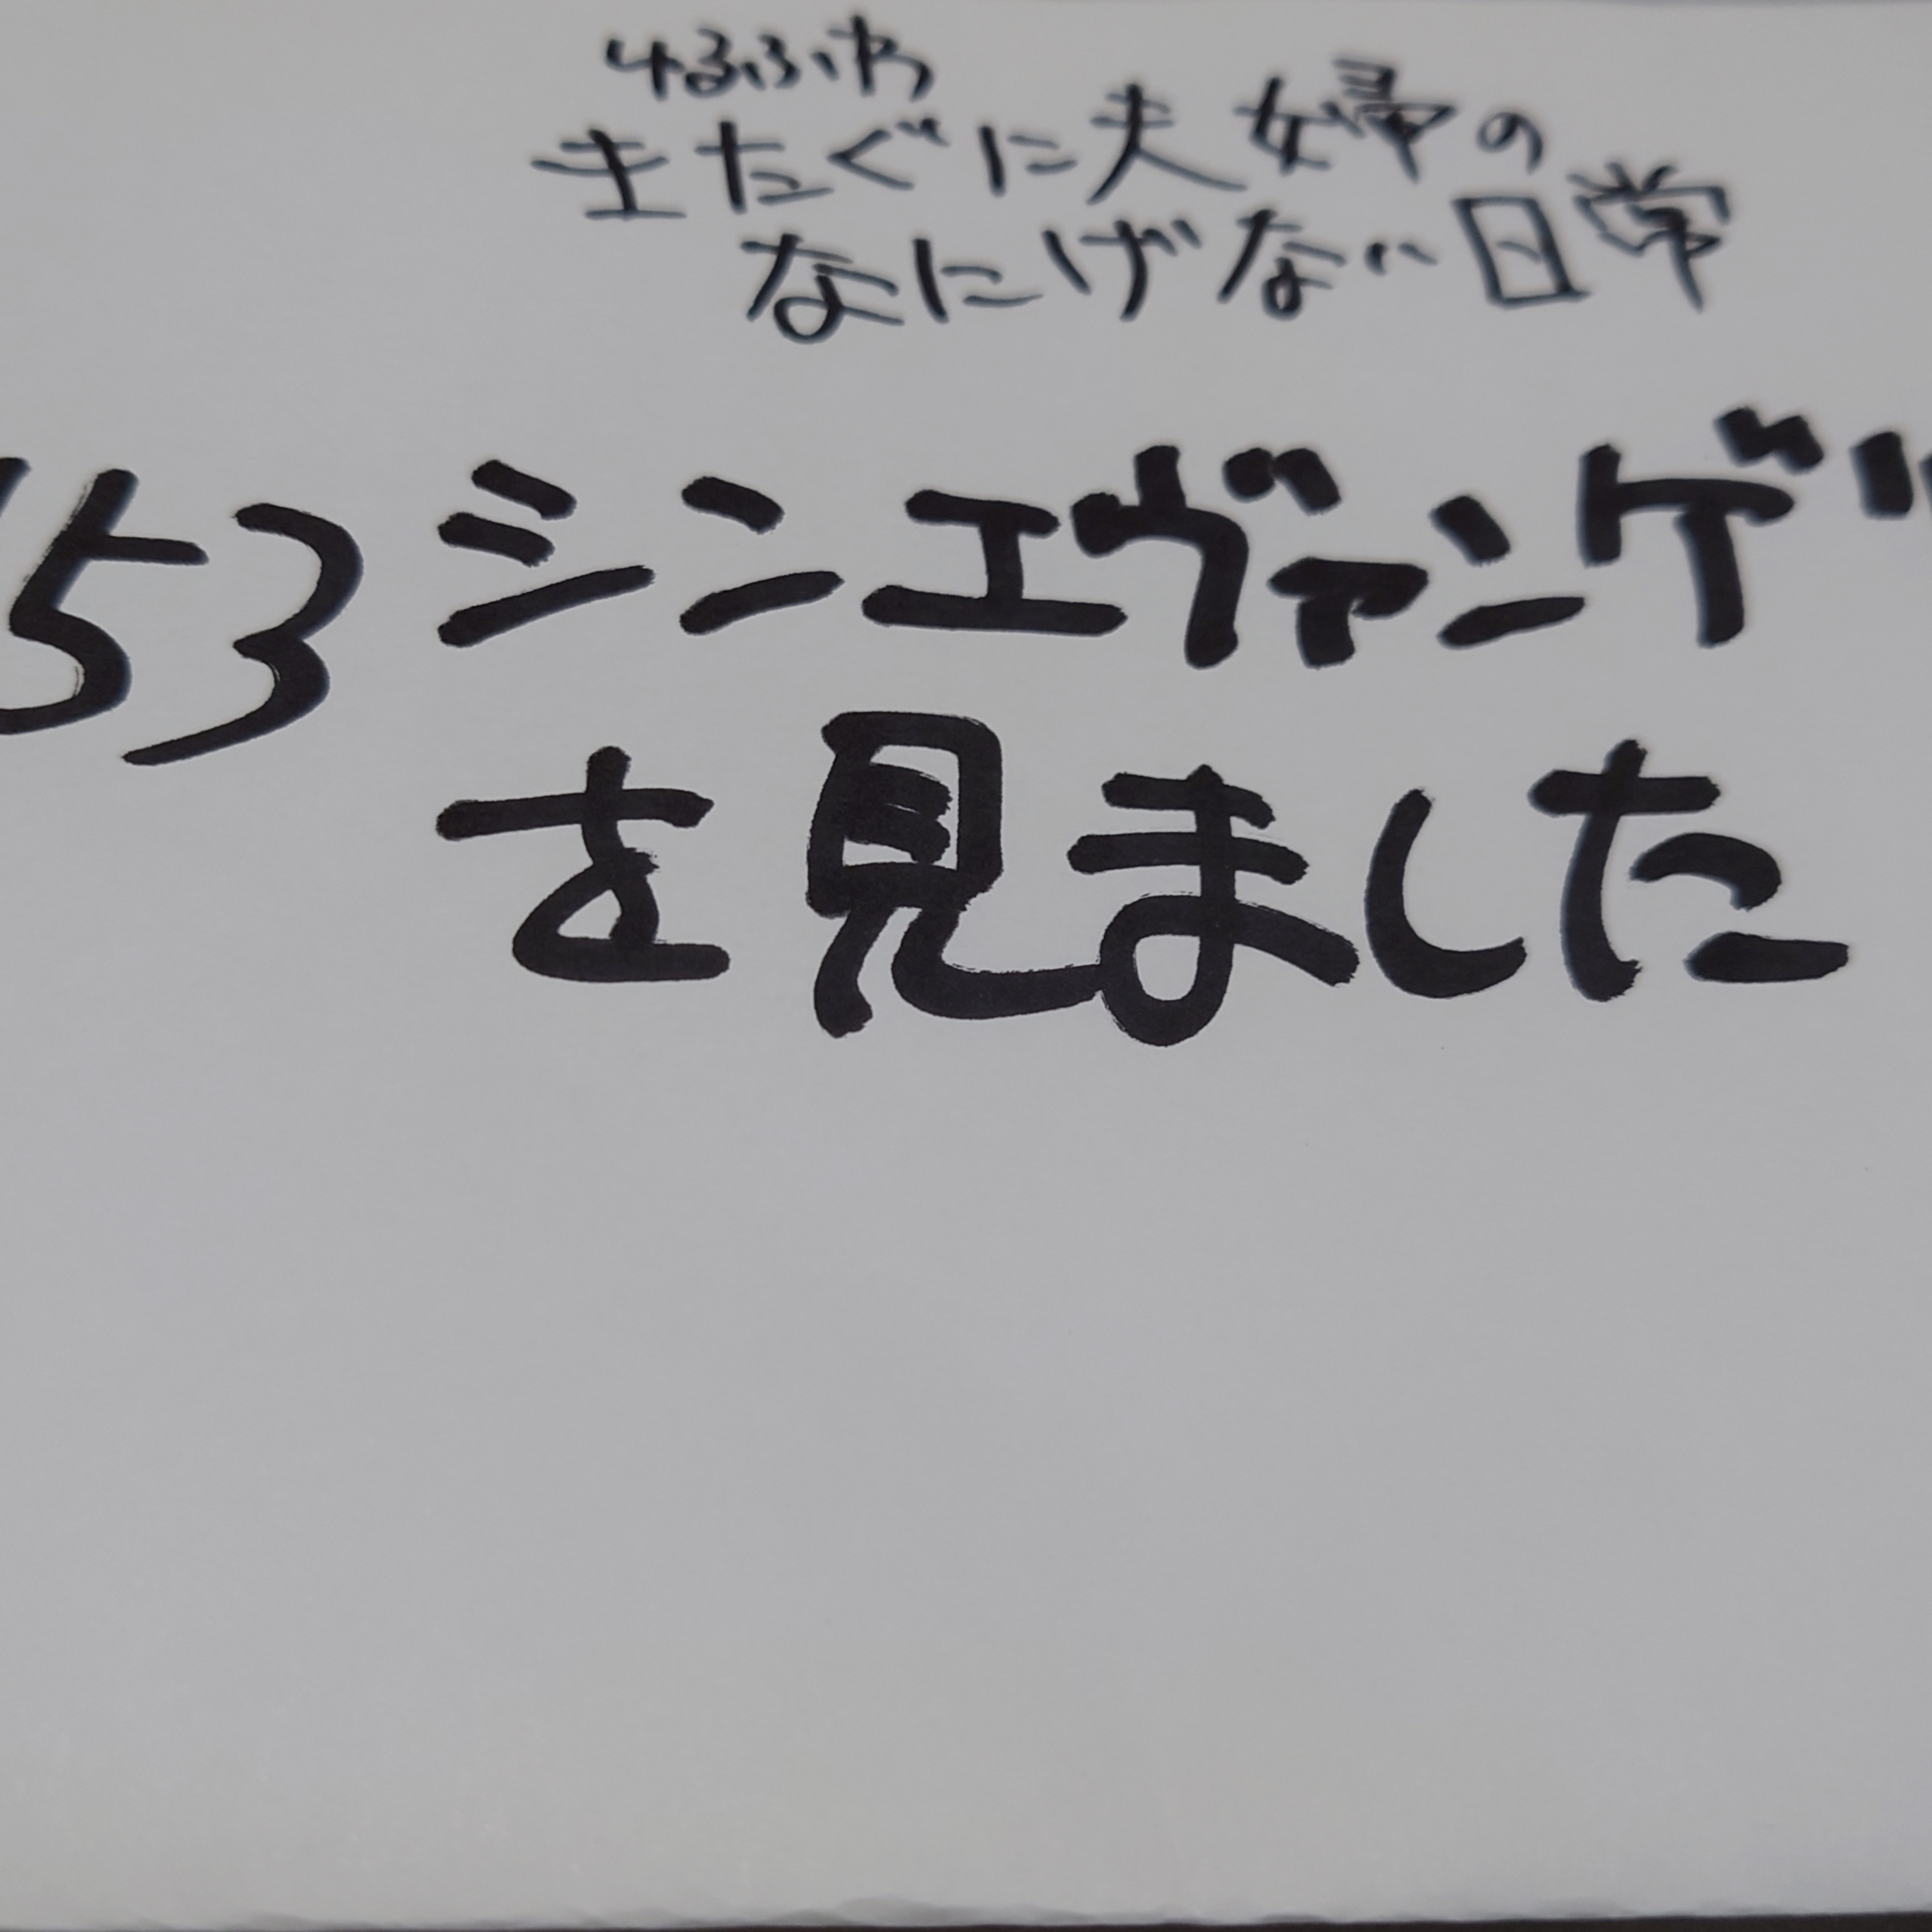 ゆるふわ
きたぐに夫婦の
なにげない日常
153 シンエヴァンゲリ
を見ました